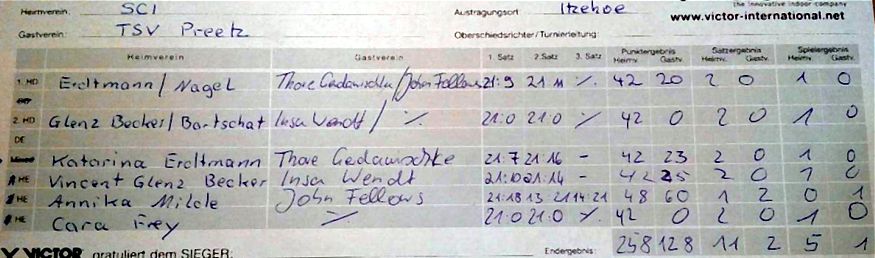 Heimverein: SCI Austragungsort Itzehoe the innovative indoor company
www.victor-international.net
Gastverein: TSV Preetz Oberschiedsrichter/Turnierleitung:
Heimverein Gastverein 1. Satz 2. Satz 3. Satz Punktergebnis Satzergebnis Spielergebnis
Heimv. Gastv. Heimv. Gastv. Heimv. Gastv.
1. HD Erdtmann / Nagel Thore Gedawschke/John Fellows 21:9 21 11 ٪ 42 20 2 0 1 0
2. HD Glenz Becker / Bartschat Insa Wendt / ٪ 21:0 21:0 ٪ 42 0 2 0 1 0
DE
Katarina Erdtmann Thore Gedawschke 21:7 21 16 - 42 23 2 0 1 0
HE Vincent Glenz Becker Insa Wendt 21:10 21:14 - 42 25 2 0 1 0
HE Annika Milde John Fellows 21:18 13 21 14:21 48 60 1 2 0 1
HE Cara Frey ٪ 21:0 21:0 ٪ 42 0 2 0 1 0
VICTOR gratuliert dem SIEGER: Endergebnis: 258 128 11 2 5 1